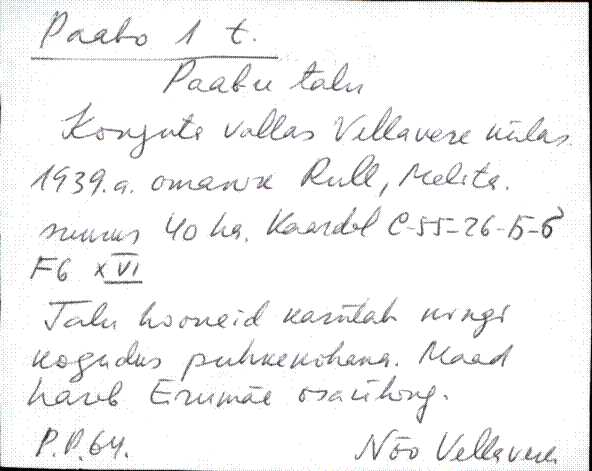 Paabo 1 t.
Paabu talu
Konguta vallas Vellavere külas
1939.a. omanik Rull, Melita.
suurus 40 ha. Kaardil C-55-26-Б-б
F6 x VI
Talu hooneid kasutab mingi
kogudus puhkekohana. Maad
harib osaühing.
P.P.64. Nõo Vellavere